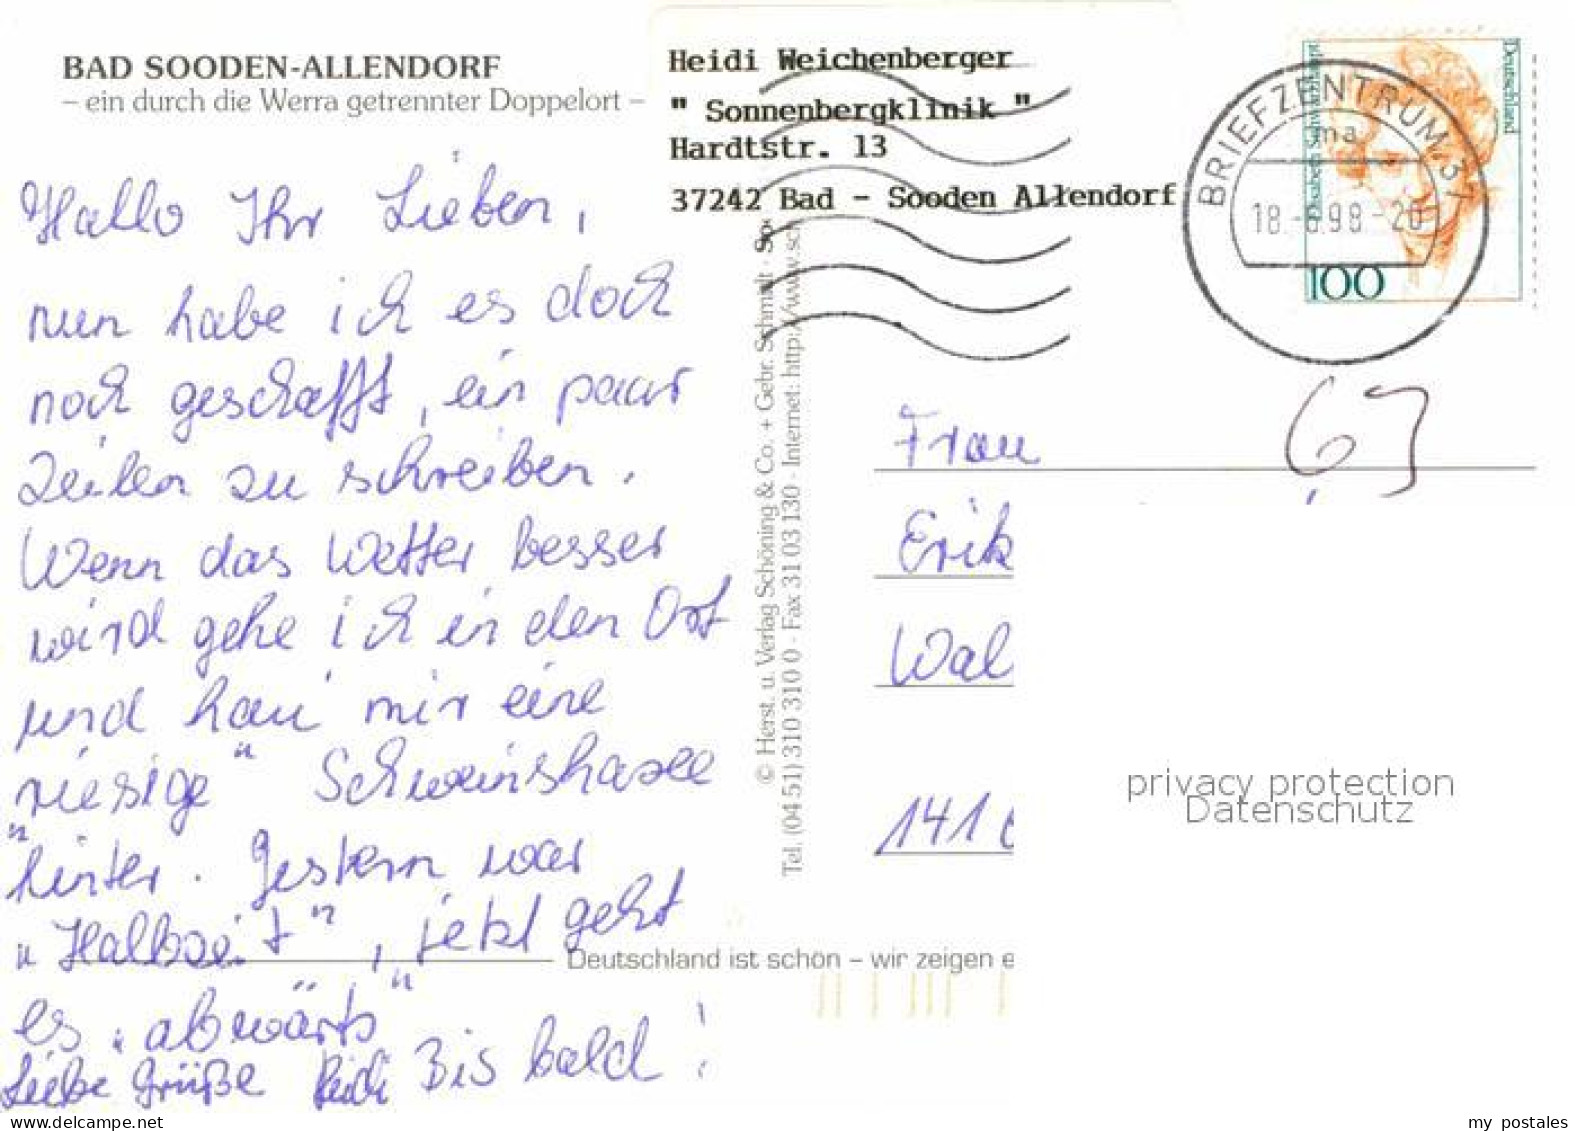 BAD SOODEN-ALLENDORF
– ein durch die Werra getrennter Doppelort –
Hallo Ihr Lieben,
nun habe ich es doch
noch geschafft, ein paar
Zeilen zu schreiben.
Wenn das Wetter besser
wird gehe ich in den Ort
und hau' mir eine
riesige "Schweinshaxe
"hinter. Gestern war
"Halbzeit", jetzt geht
es "abwärts"
Liebe Grüße Heidi Bis bald!
Heidi Weichenberger
" Sonnenbergklinik "
Hardtstr. 13
37242 Bad - Sooden Allendorf
© Herst. u. Verlag Schöning & Co. + Gebr. Schmidt ·
Tel. (04 51) 310 310 0 · Fax 31 03 130 · Internet: http://www.sc
BRIEFZENTRUM 37
ma
18.-6.98-20
Deutschland
Elisabeth Schwarzhaupt
100
63
Frau
Erik
Wal
141
privacy protection
Datenschutz
Deutschland ist schön – wir zeigen e
my postales